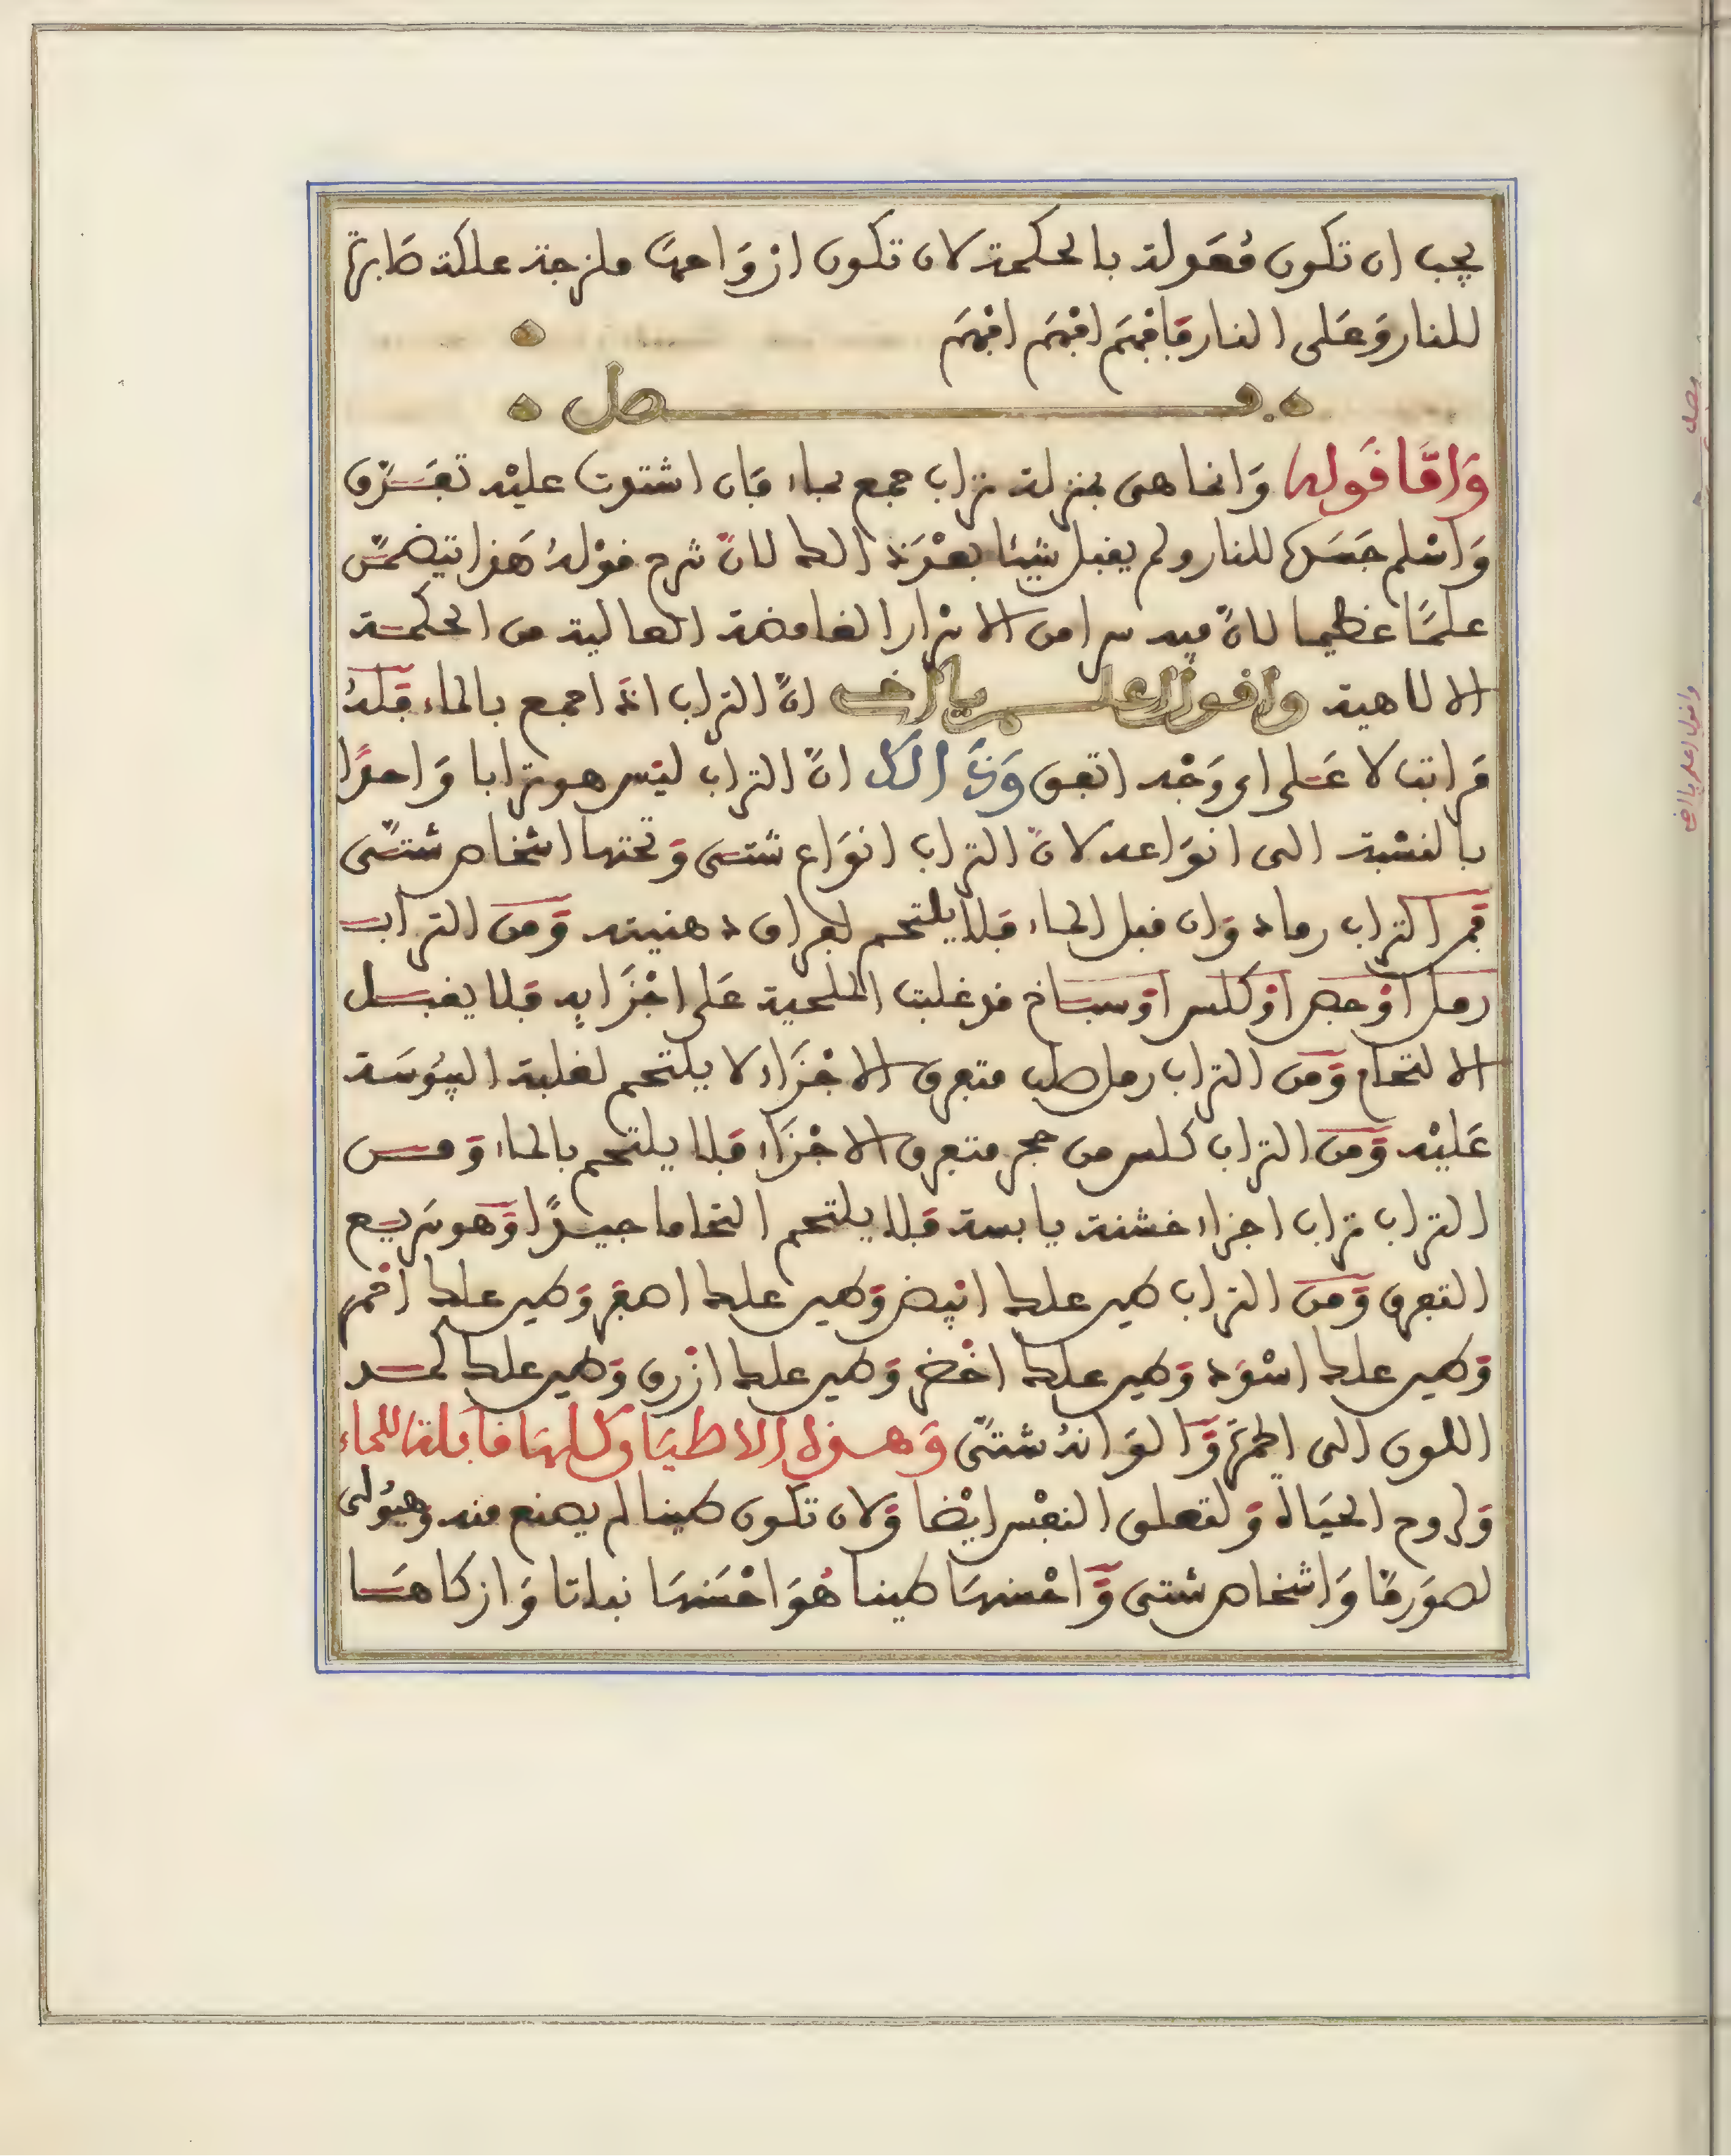 يجب ان تكون مُعَولة بالحكمة لان تكون ازوَاجهَا ملزجة علكة صَابرة
للنار وَعَلى النار فَافْهَم افْهَم افْهَم
فصل
وَامَّا قَوله وَانما هى بمنزلة تراب جمع بماء فَان اشتدت عليْه تفَرّق
وَاسْلم جَسَده للنار ولم يقبل شيئا بعْدَ ذالك لانّ شرح قوْلهُ هَذا يتضمّن
علمًا عظيما لانّ فيه سرا من الاسْرار الغامضة العالية من الحكمة
الالاهية وافول اعلم يا اخى انّ التراب اذا جمع بالماء فَلهُ
مَراتب لا عَلى اى وَجْه اتفق وَذَالك انّ التراب ليْس هو ترابا وَاحدًا
بالنسْبة الى انوَاعه لانّ التراب انوَاع شتى وَتحتها اشخاص شتَّى
فَمن التراب رماد وَان قبل الماء فَلا يلتحم لفراق دهنيته وَمن التراب
رمل اوْ جص اوْ كلس اوْ سبَاخ قد غلبت الملحية عَلى اجْزَايه فَلا يقبل
الالتحام وَمن التراب رمل صلب متفرق الاجْزَاء لا يلتحم لغلبة اليبُوسَة
عَليْه وَمن التراب كلس من حجر متفرق الاجْزَاء فَلا يلتحم بالماء وَمن
التراب تراب اجزاء خشنة يابسة فَلا يلتحم التحاما جيدًا وَهو سَريع
التفرق وَمن التراب طين علك ابْيض وَطين علك اصفَر وَطين علك احْمر
وَطين علك اسْوَد وَطين علك اخْضر وَطين علك ازْرق وَطين علك كمد
اللون الى الحمرَة وَالوَانهُ شتَّى وَهذه الاطيَان كلهَا قابلة للماء
وَلروح الحيَاة وَلتعلق النفْس ايْضا وَلان تكون طينا لم يصنع منه وَهيُولى
لصوَرهَا وَاشخاص شتى وَاحْسنهَا طينا هُوَ احْسَنهَا نباتا وَازكاهَا
فصل
وافول اعلم يا اخى